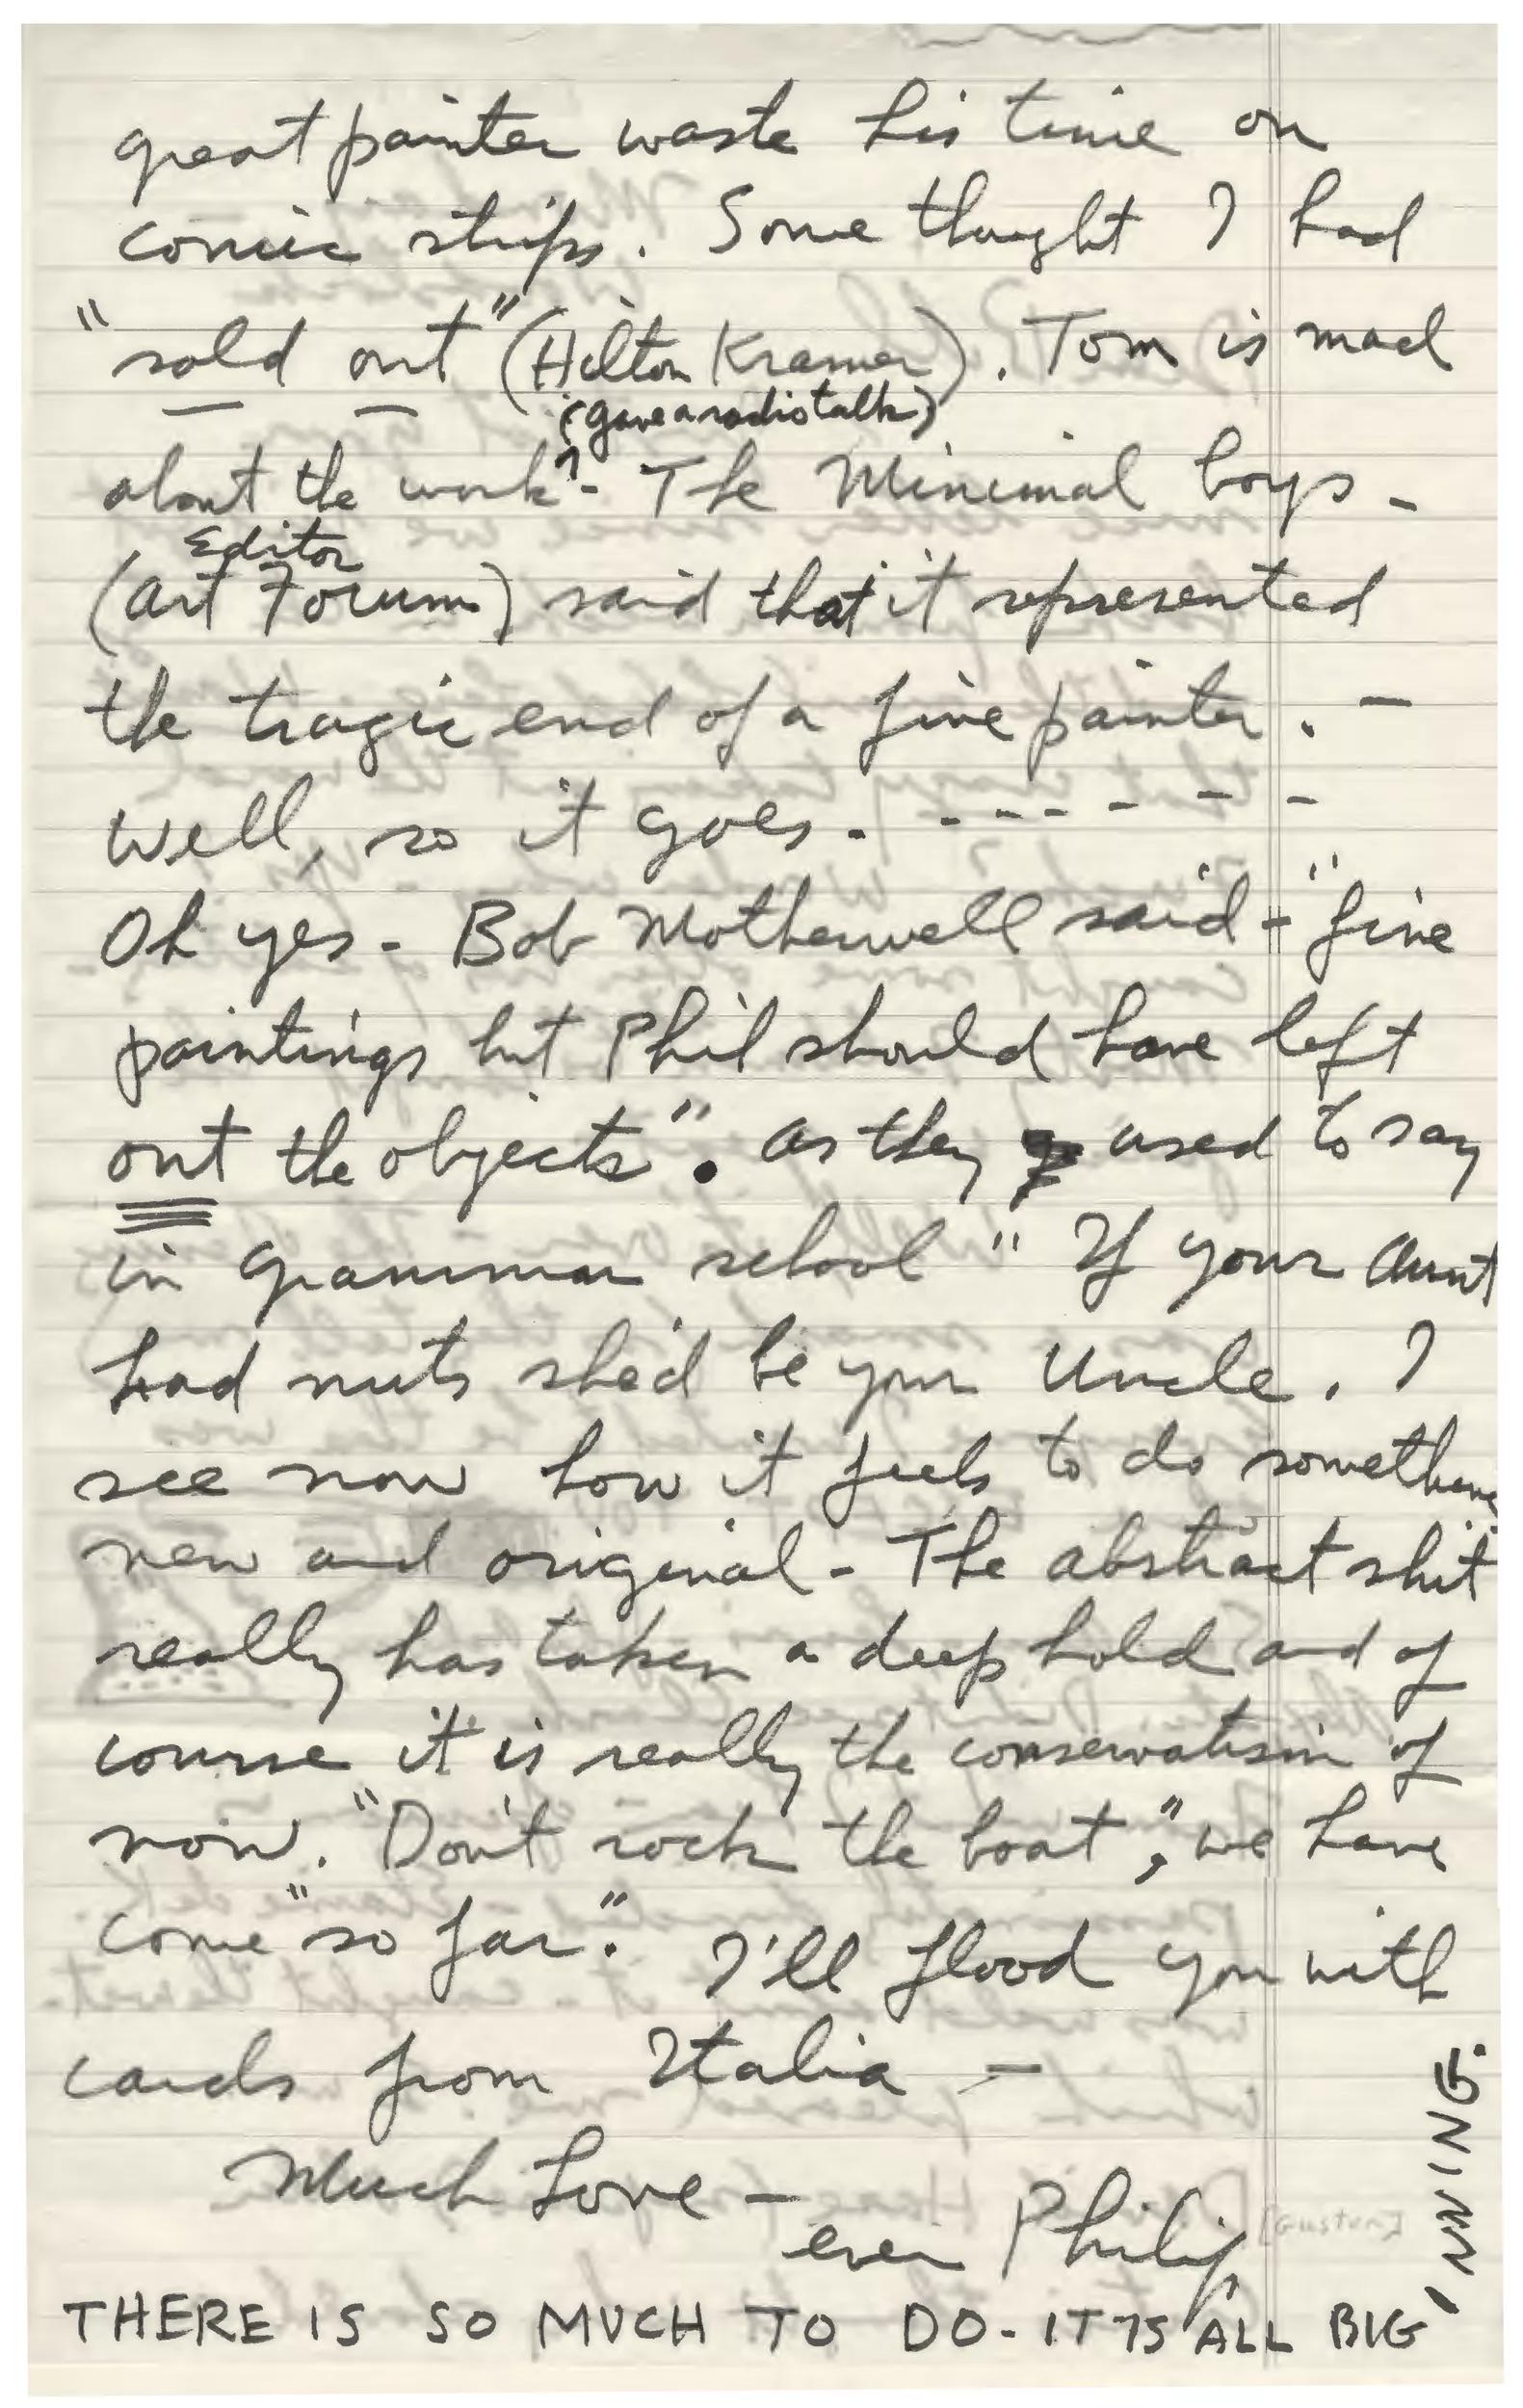 great painter waste his time on
comic strips. Some thought I had
"sold out" (Hilton Kramer). Tom is mad
(gave a radio talk)
about the work - The Minimal boys -
Editor
(Art Forum) said that it represented
the tragic end of a fine painter. -
Well, so it goes. - - - - - - -
Oh yes - Bob Motherwell said - "fine
paintings but Phil should have left
out the objects". As they used to say
in Grammar school " If your Aunt
had nuts she'd be your Uncle. I
see now how it feels to do something
new and original - The abstract shit
really has taken a deep hold and of
course it is really the conservatism of
now. "Don't rock the boat", we have
come "so far." I'll flood you with
cards from Italia -
Much Love -
ever Philip
[Guston]
THERE IS SO MUCH TO DO - IT IS ALL BIG
INNING.